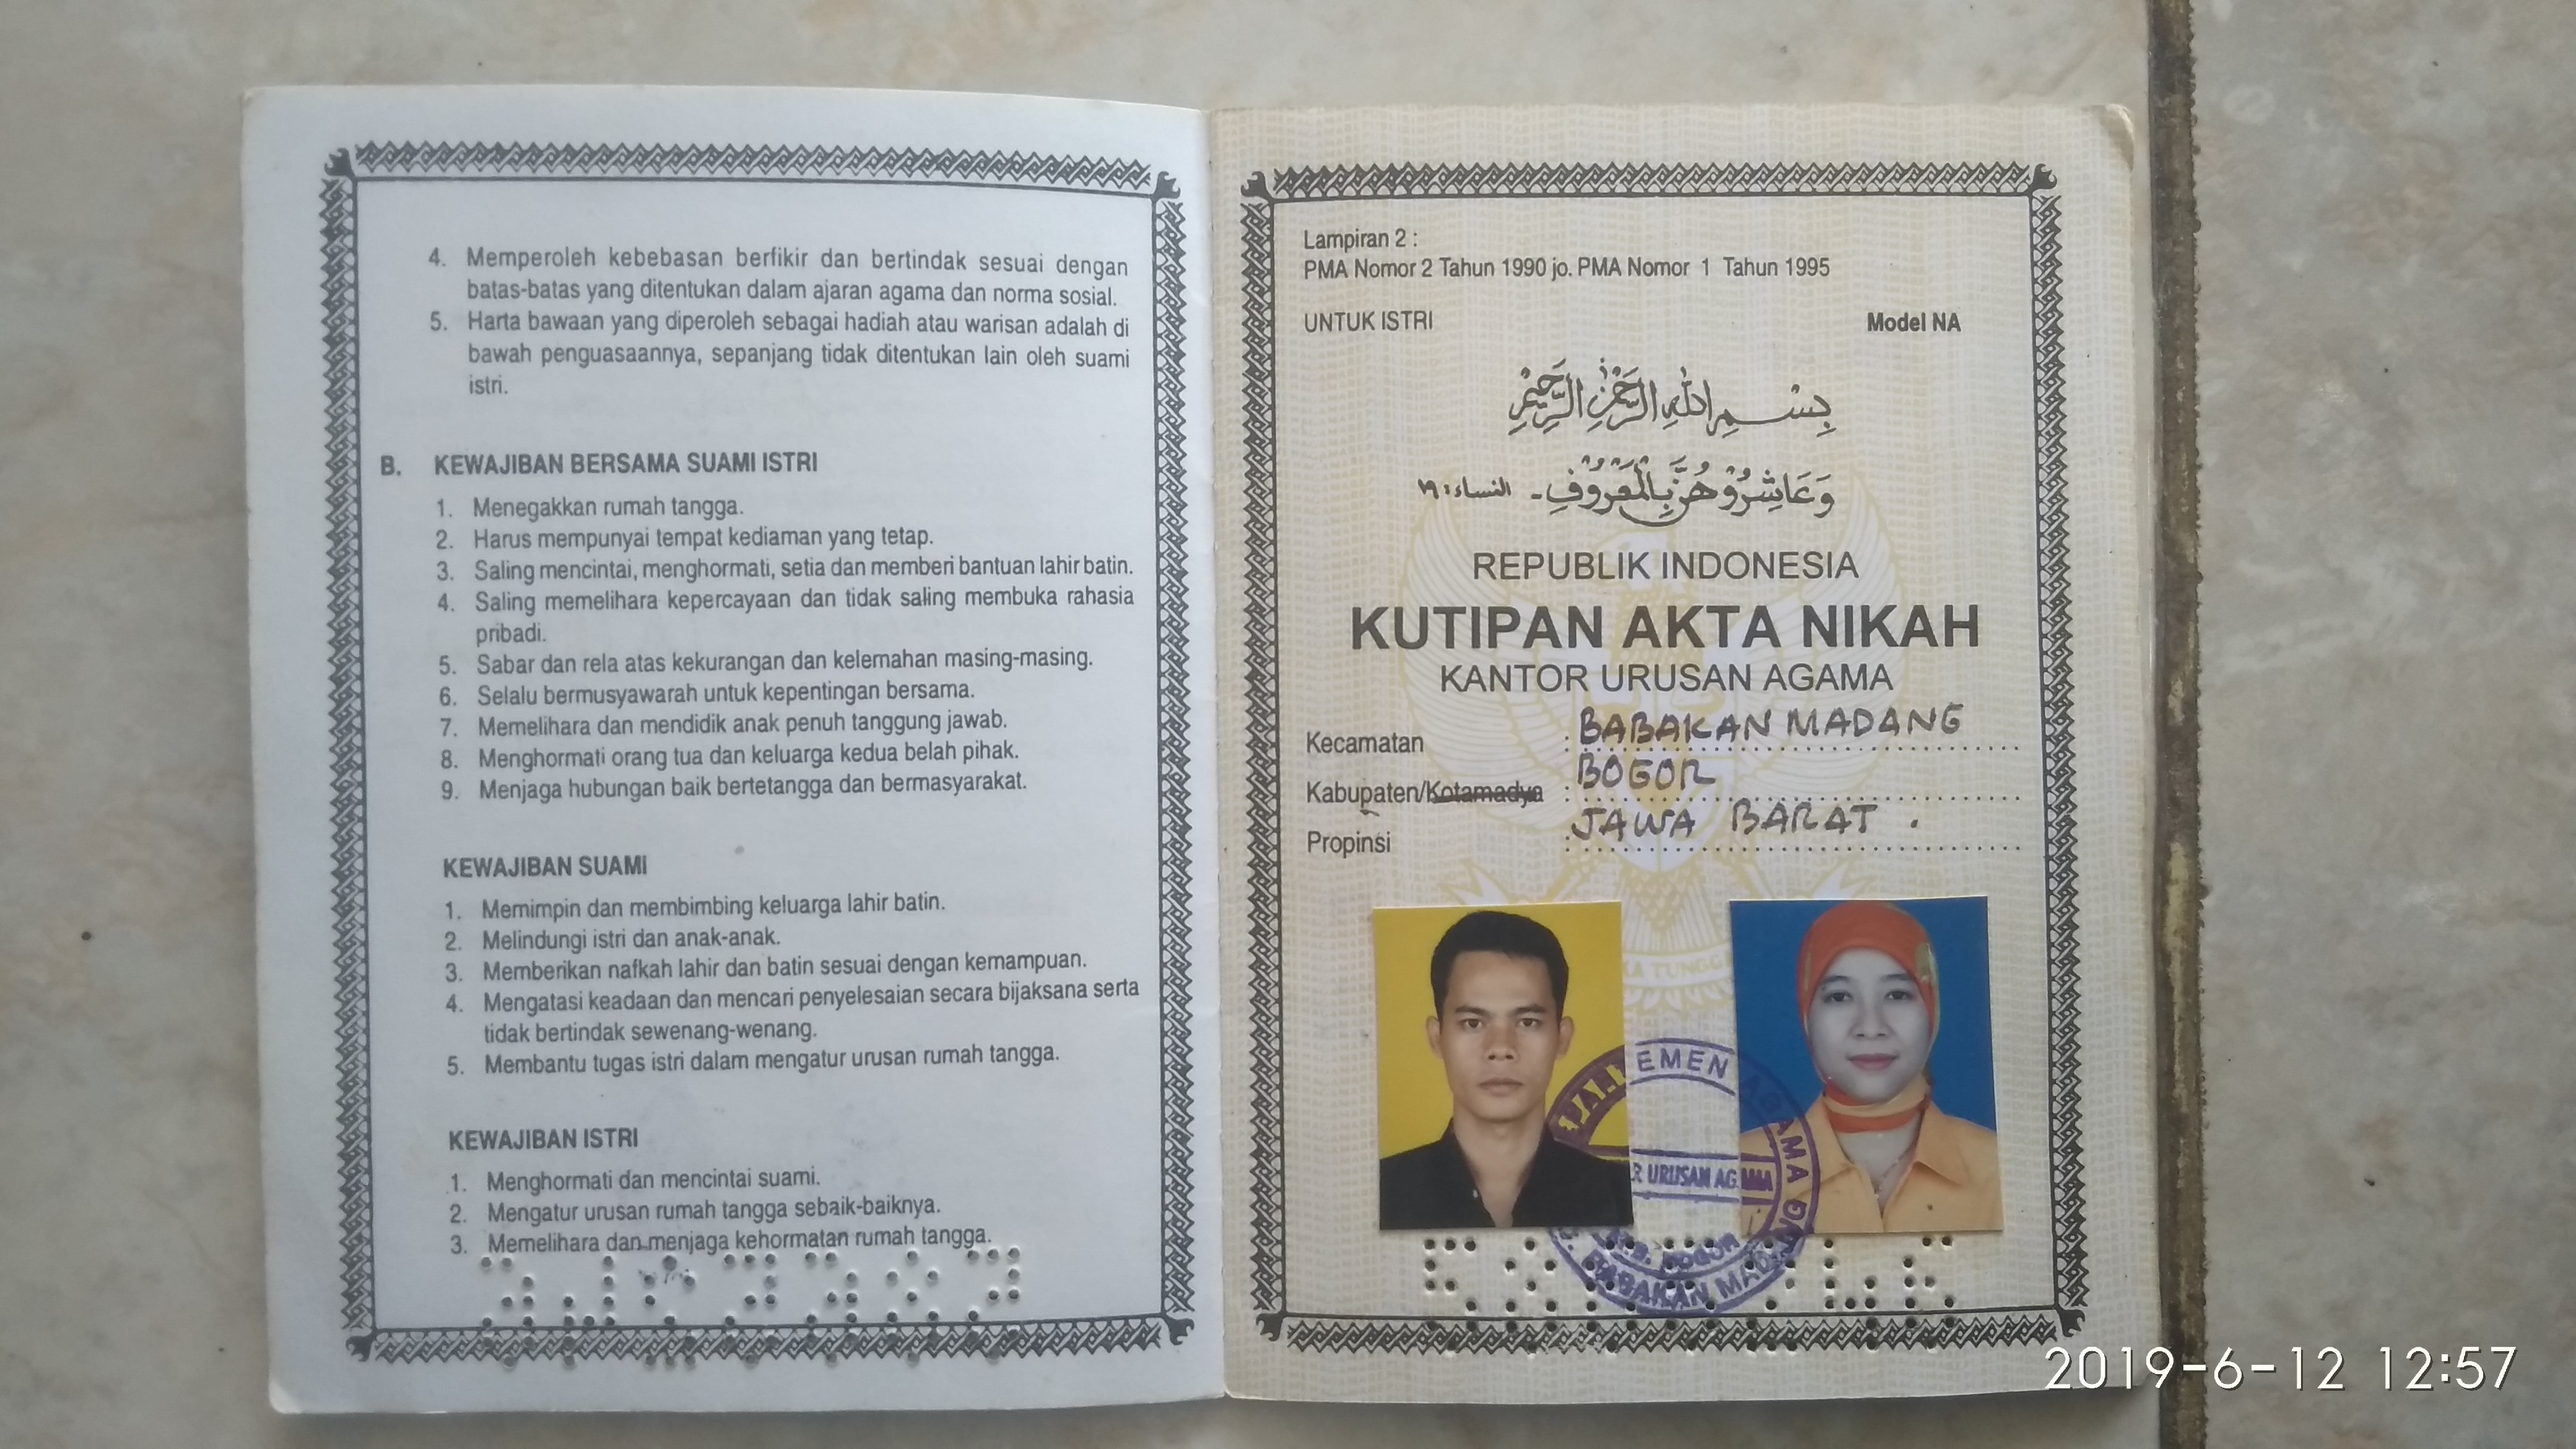 4. Memperoleh kebebasan berfikir dan bertindak sesuai dengan
batas-batas yang ditentukan dalam ajaran agama dan norma sosial.
5. Harta bawaan yang diperoleh sebagai hadiah atau warisan adalah di
bawah penguasaannya, sepanjang tidak ditentukan lain oleh suami
istri.
B. KEWAJIBAN BERSAMA SUAMI ISTRI
1. Menegakkan rumah tangga.
2. Harus mempunyai tempat kediaman yang tetap.
3. Saling mencintai, menghormati, setia dan memberi bantuan lahir batin.
4. Saling memelihara kepercayaan dan tidak saling membuka rahasia
pribadi.
5. Sabar dan rela atas kekurangan dan kelemahan masing-masing.
6. Selalu bermusyawarah untuk kepentingan bersama.
7. Memelihara dan mendidik anak penuh tanggung jawab.
8. Menghormati orang tua dan keluarga kedua belah pihak.
9. Menjaga hubungan baik bertetangga dan bermasyarakat.
KEWAJIBAN SUAMI
1. Memimpin dan membimbing keluarga lahir batin.
2. Melindungi istri dan anak-anak.
3. Memberikan nafkah lahir dan batin sesuai dengan kemampuan.
4. Mengatasi keadaan dan mencari penyelesaian secara bijaksana serta
tidak bertindak sewenang-wenang.
5. Membantu tugas istri dalam mengatur urusan rumah tangga.
KEWAJIBAN ISTRI
1. Menghormati dan mencintai suami.
2. Mengatur urusan rumah tangga sebaik-baiknya.
3. Memelihara dan menjaga kehormatan rumah tangga.
Lampiran 2 :
PMA Nomor 2 Tahun 1990 jo. PMA Nomor 1 Tahun 1995
UNTUK ISTRI Model NA
بِسْمِ اللهِ الرَّحْمٰنِ الرَّحِيْمِ
وَعَاشِرُوْهُنَّ بِالْمَعْرُوْفِ - النساء : ١٩
REPUBLIK INDONESIA
KUTIPAN AKTA NIKAH
KANTOR URUSAN AGAMA
Kecamatan : BABAKAN MADANG
Kabupaten/Kotamadya : BOGOR
Propinsi : JAWA BARAT .
EMEN AGAMA
R URUSAN AGAMA
KAB. BOGOR
BABAKAN MADANG
2019-6-12 12:57